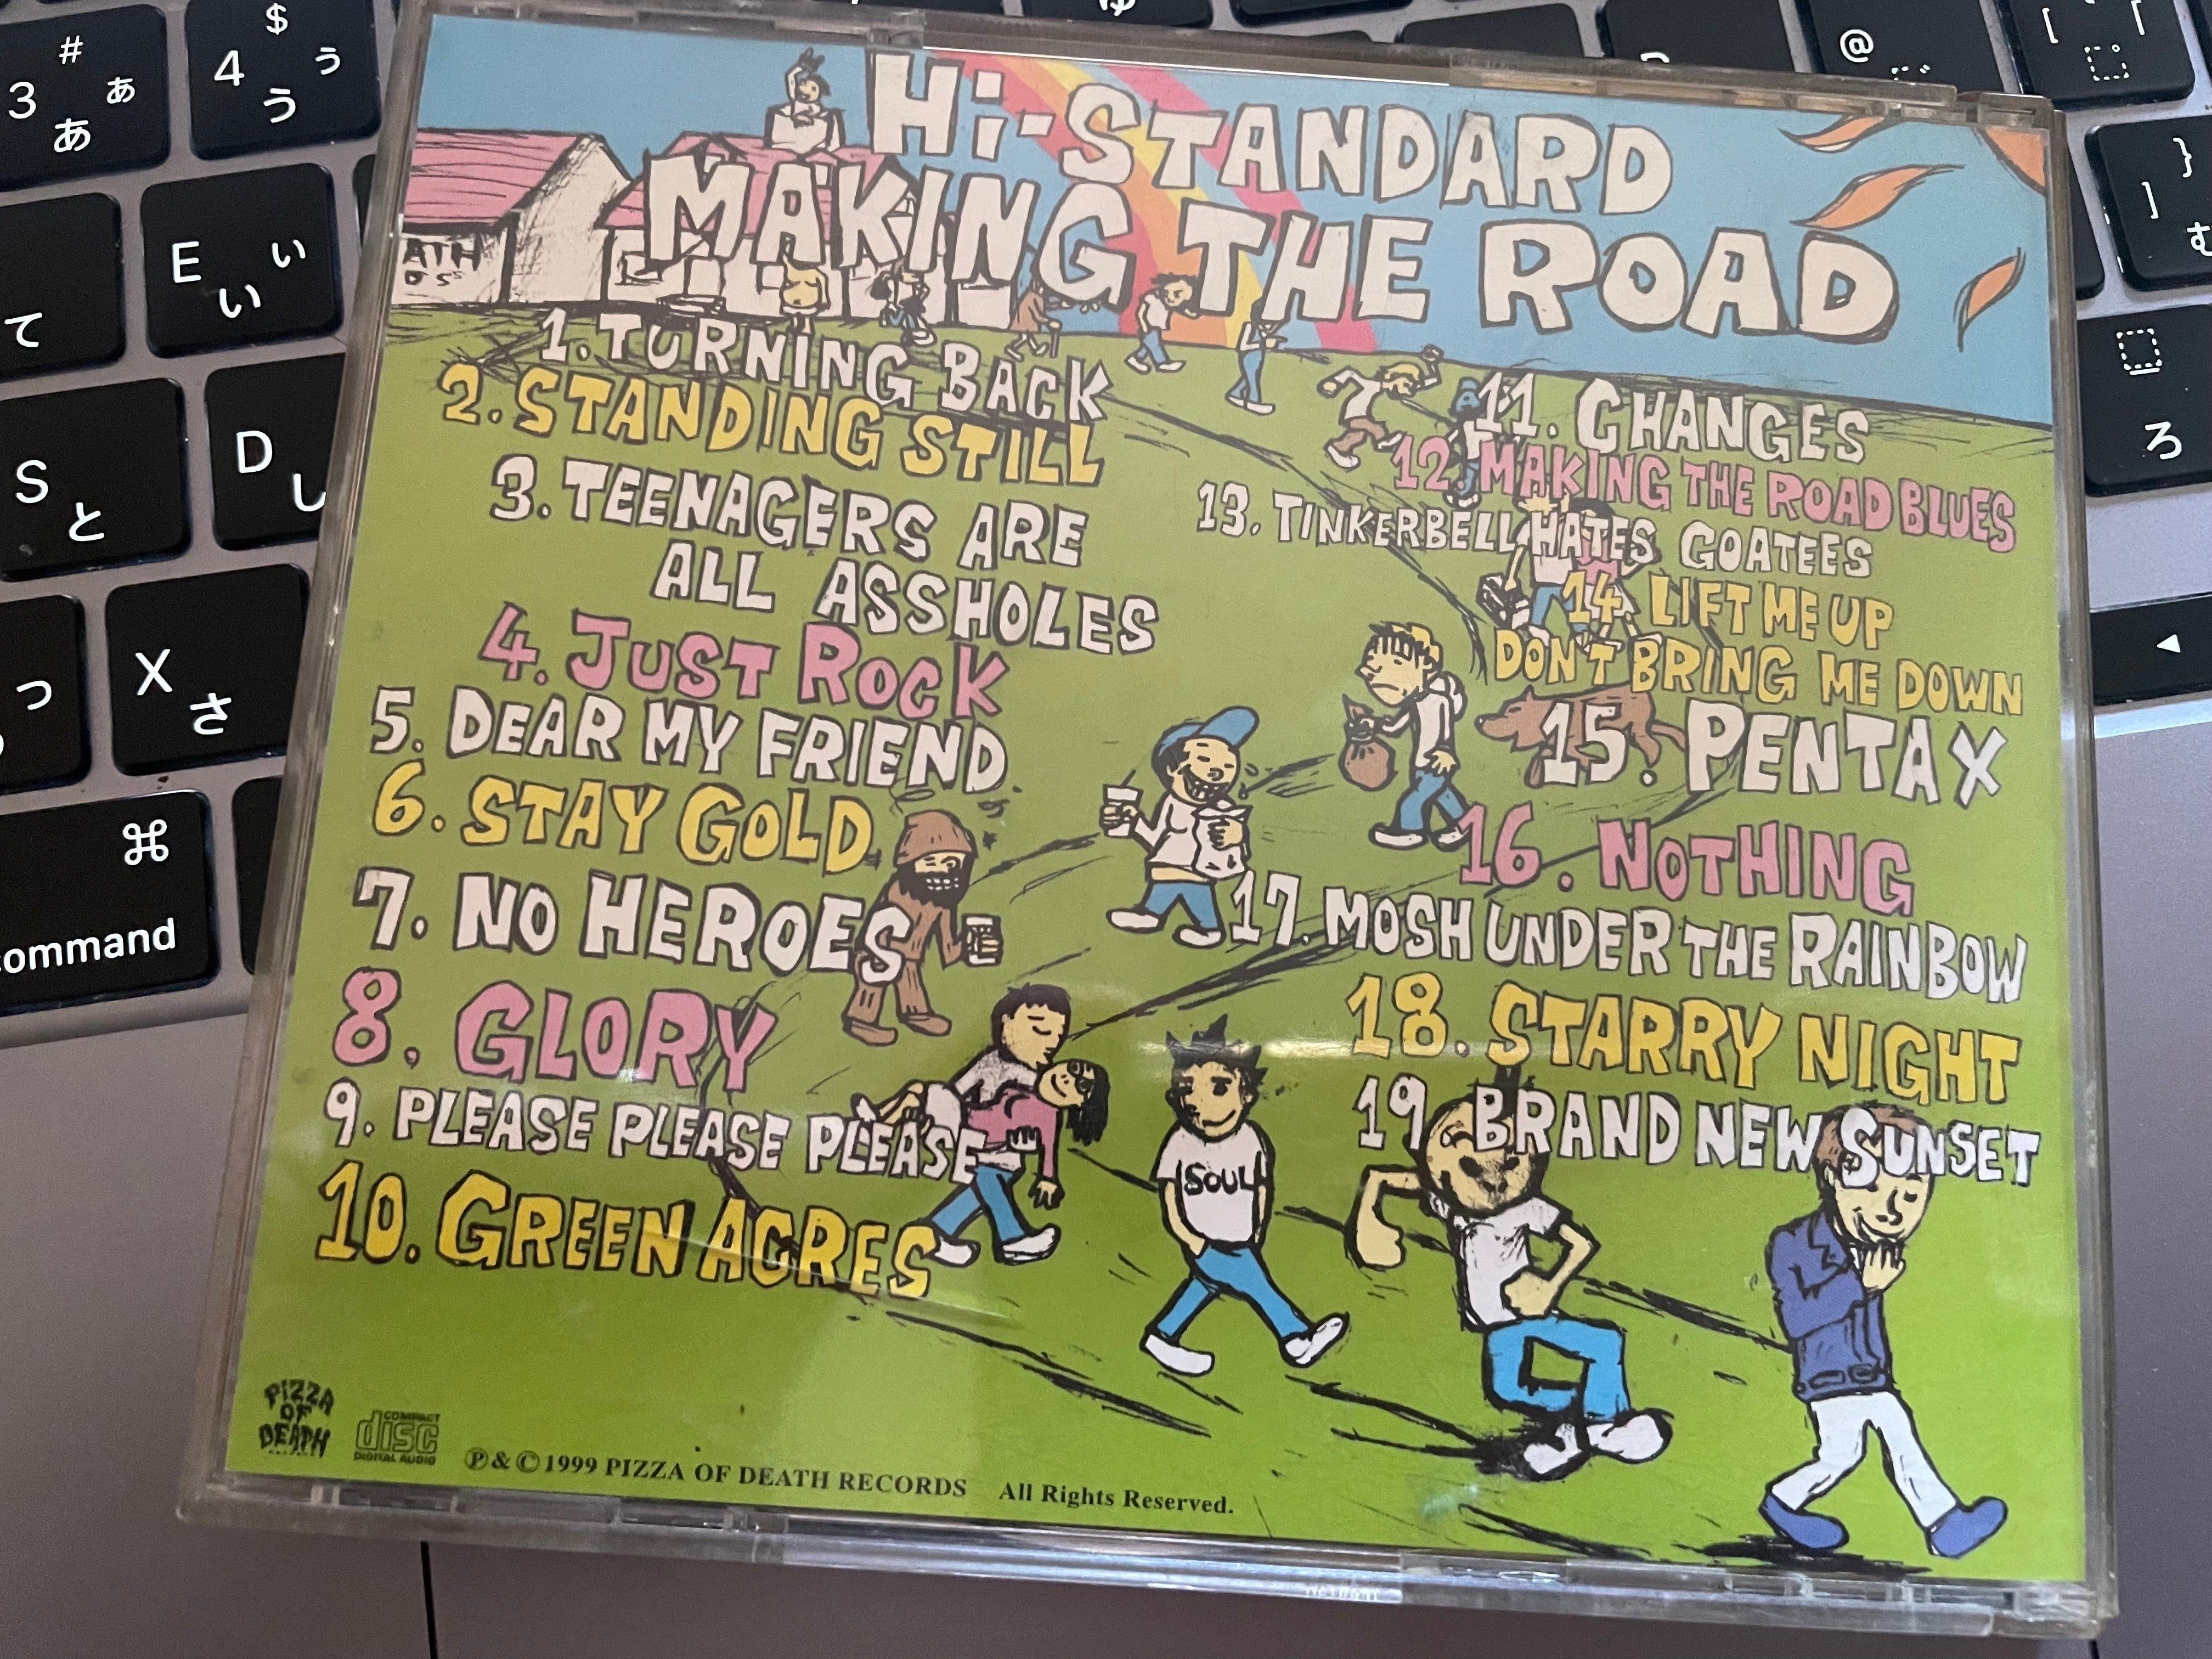 # 3 あ あ
$ 4 う う
ゅ
@
[ 「
} ]
て
E い い
S と
D し
ろ
っ
X さ
⌘
command
Hi-STANDARD
MAKING THE ROAD
ATH
1. TURNING BACK
2. STANDING STILL
3. TEENAGERS ARE
ALL ASSHOLES
4. JUST ROCK
5. DEAR MY FRIEND
6. STAY GOLD
7. NO HEROES
8. GLORY
9. PLEASE PLEASE PLEASE
10. GREEN ACRES
11. CHANGES
12. MAKING THE ROAD BLUES
13. TINKERBELL HATES GOATEES
14. LIFT ME UP
DON'T BRING ME DOWN
15. PENTAX
16. NOTHING
17. MOSH UNDER THE RAINBOW
18. STARRY NIGHT
19. BRAND NEW SUNSET
SOUL
PIZZA
OF
DEATH
COMPACT
disc
DIGITAL AUDIO
Ⓟ & © 1999 PIZZA OF DEATH RECORDS All Rights Reserved.